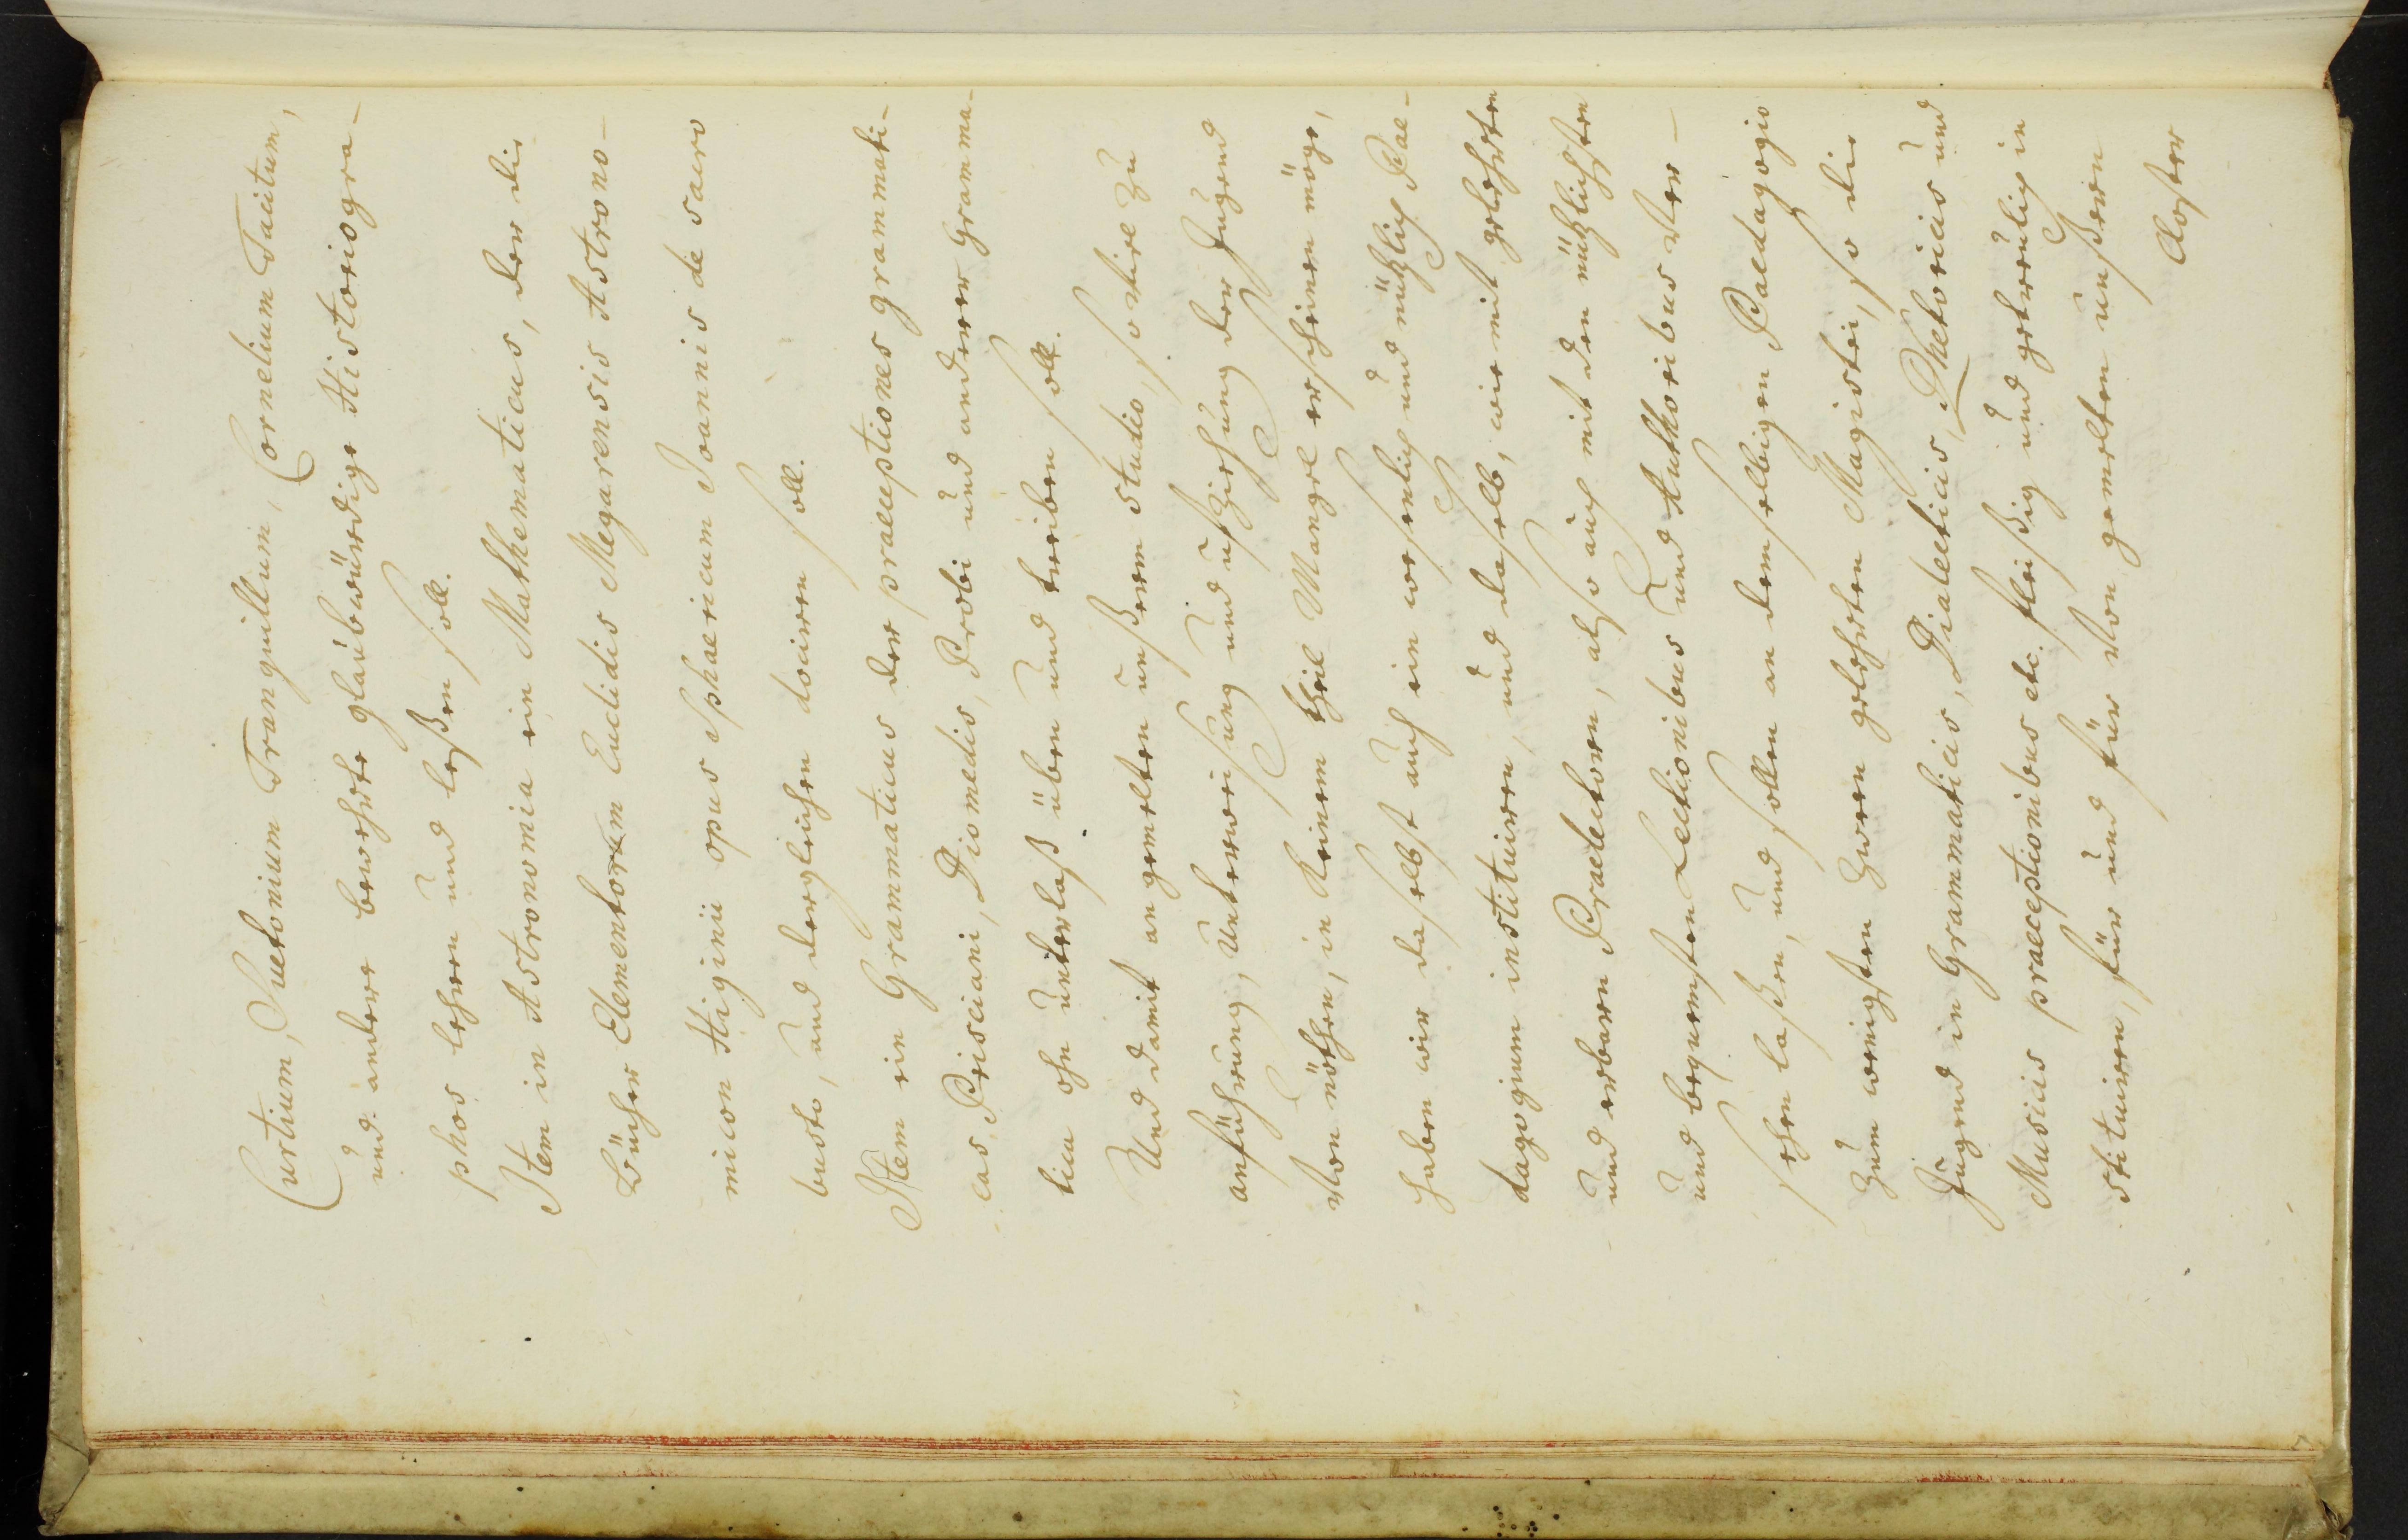 Curtium, Suetonium Tranquillum, Cornelium Tacitum,
und andere bewehrte glaubwürdige Historiogra-
phos lehren und leßen soll.
Item in Astronomia ein Mathematicus, der die
Bücher Elementorem Euclidis Megarensis Astrono-
micon Higinii opus Sphaericum Joannis de sacro
busto, und dergleichen dociren soll.
Item ein Grammaticus der praeceptiones grammati-
cas, Prisciani, Diomedis, Probi und anderer Gramma-
ticu ohn unterlaß üben und treiben soll.
Und damit angemelten unßerem studio, so viel zu
anführung, Unterweisung und ufziehung der Jugend
von nöthen, in keinem theil Mangel erscheinen möge,
haben wir daselbst auch ein wesenlich und nützlich Pae-
dagogium instituiren, und daselb, wie mit gelehrten
und erbaren Praelectorn, also auch mit den nützlichsten
und bequemsten Lectionibus und Authoribus ver-
sehen laßen, und sollen an demselbigen Paedagogio
zum wenigsten Zween gelehrten Magistri, so die
Jugend in Grammaticis, Dialecticis, Rhetoricis und
Musicis praeceptionibus etc. fleißig und getreulich in
stituiren, für und für von gemelten unßeren
Closter